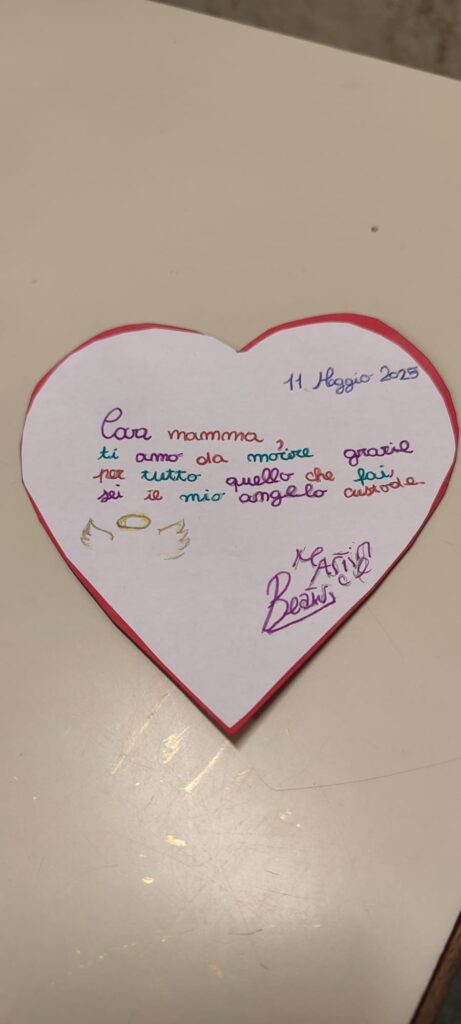 11 Maggio 2025
Cara mamma,
ti amo da morire grazie
per tutto quello che fai
sei il mio angelo custode